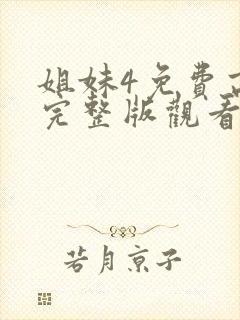 姐妹4免費
完整版觀看
若月京子